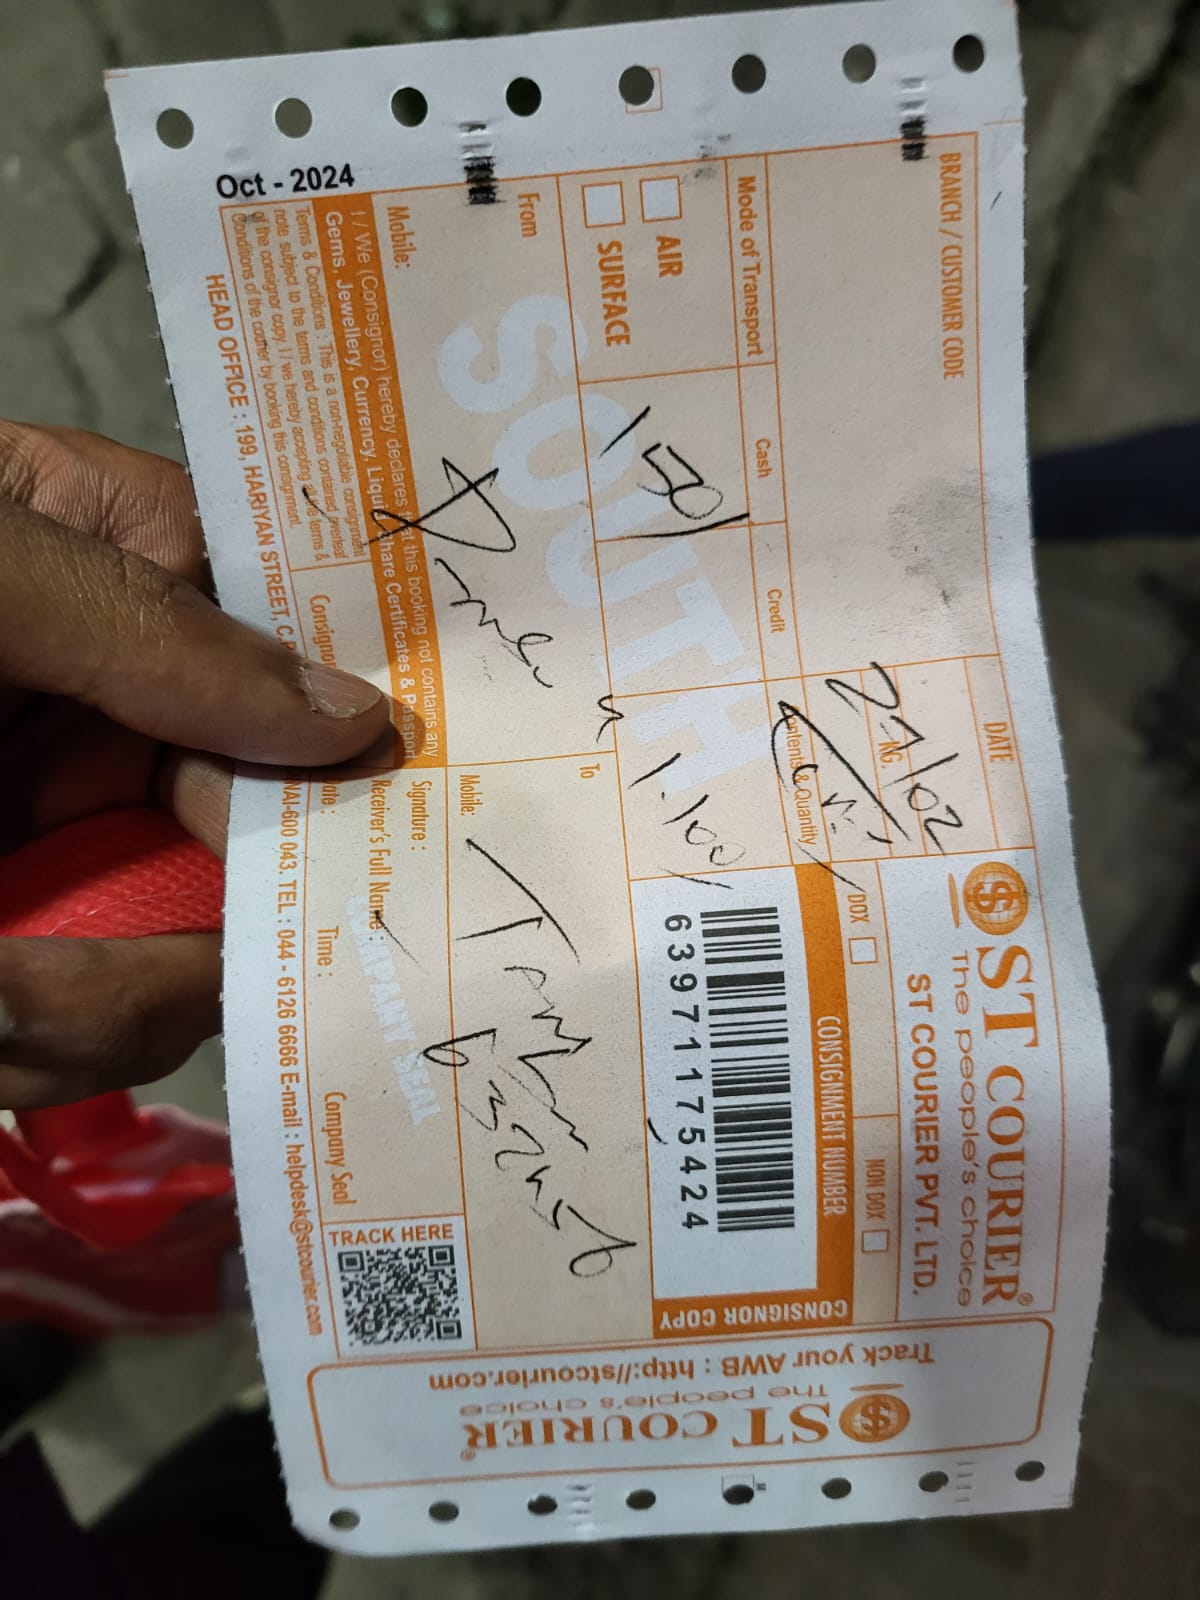 BRANCH / CUSTOMER CODE
DATE
27/02
KG.
Contents & Quantity
1.100
Mode of Transport
Cash
Credit
AIR
SURFACE
150/
SOUTH
$ ST COURIER®
The people's choice
ST COURIER PVT. LTD.
DOX
NON DOX
CONSIGNMENT NUMBER
63971175424
CONSIGNOR COPY
From
Mobile:
To
Mobile:
I / We (Consignor) hereby declares that this booking not contains any
Gems, Jewellery, Currency, Liquid, Share Certificates & Passport
Terms & Conditions : This is a non-negotiable consignment
note subject to the terms and conditions contained overleaf
of the consignor copy. I / we hereby accepting all the terms &
Conditions of the courier by booking this consignment.
Consignor
Signature :
Receiver's Full Name :
Date :
Time :
Company Seal
COMPANY SEAL
TRACK HERE
HEAD OFFICE : 199, HARIYAN STREET, C.P
NAI-600 043. TEL : 044 - 6126 6666 E-mail : helpdesk@stcourier.com
Oct - 2024
$ ST COURIER®
The people's choice
Track your AWB : http://stcourier.com